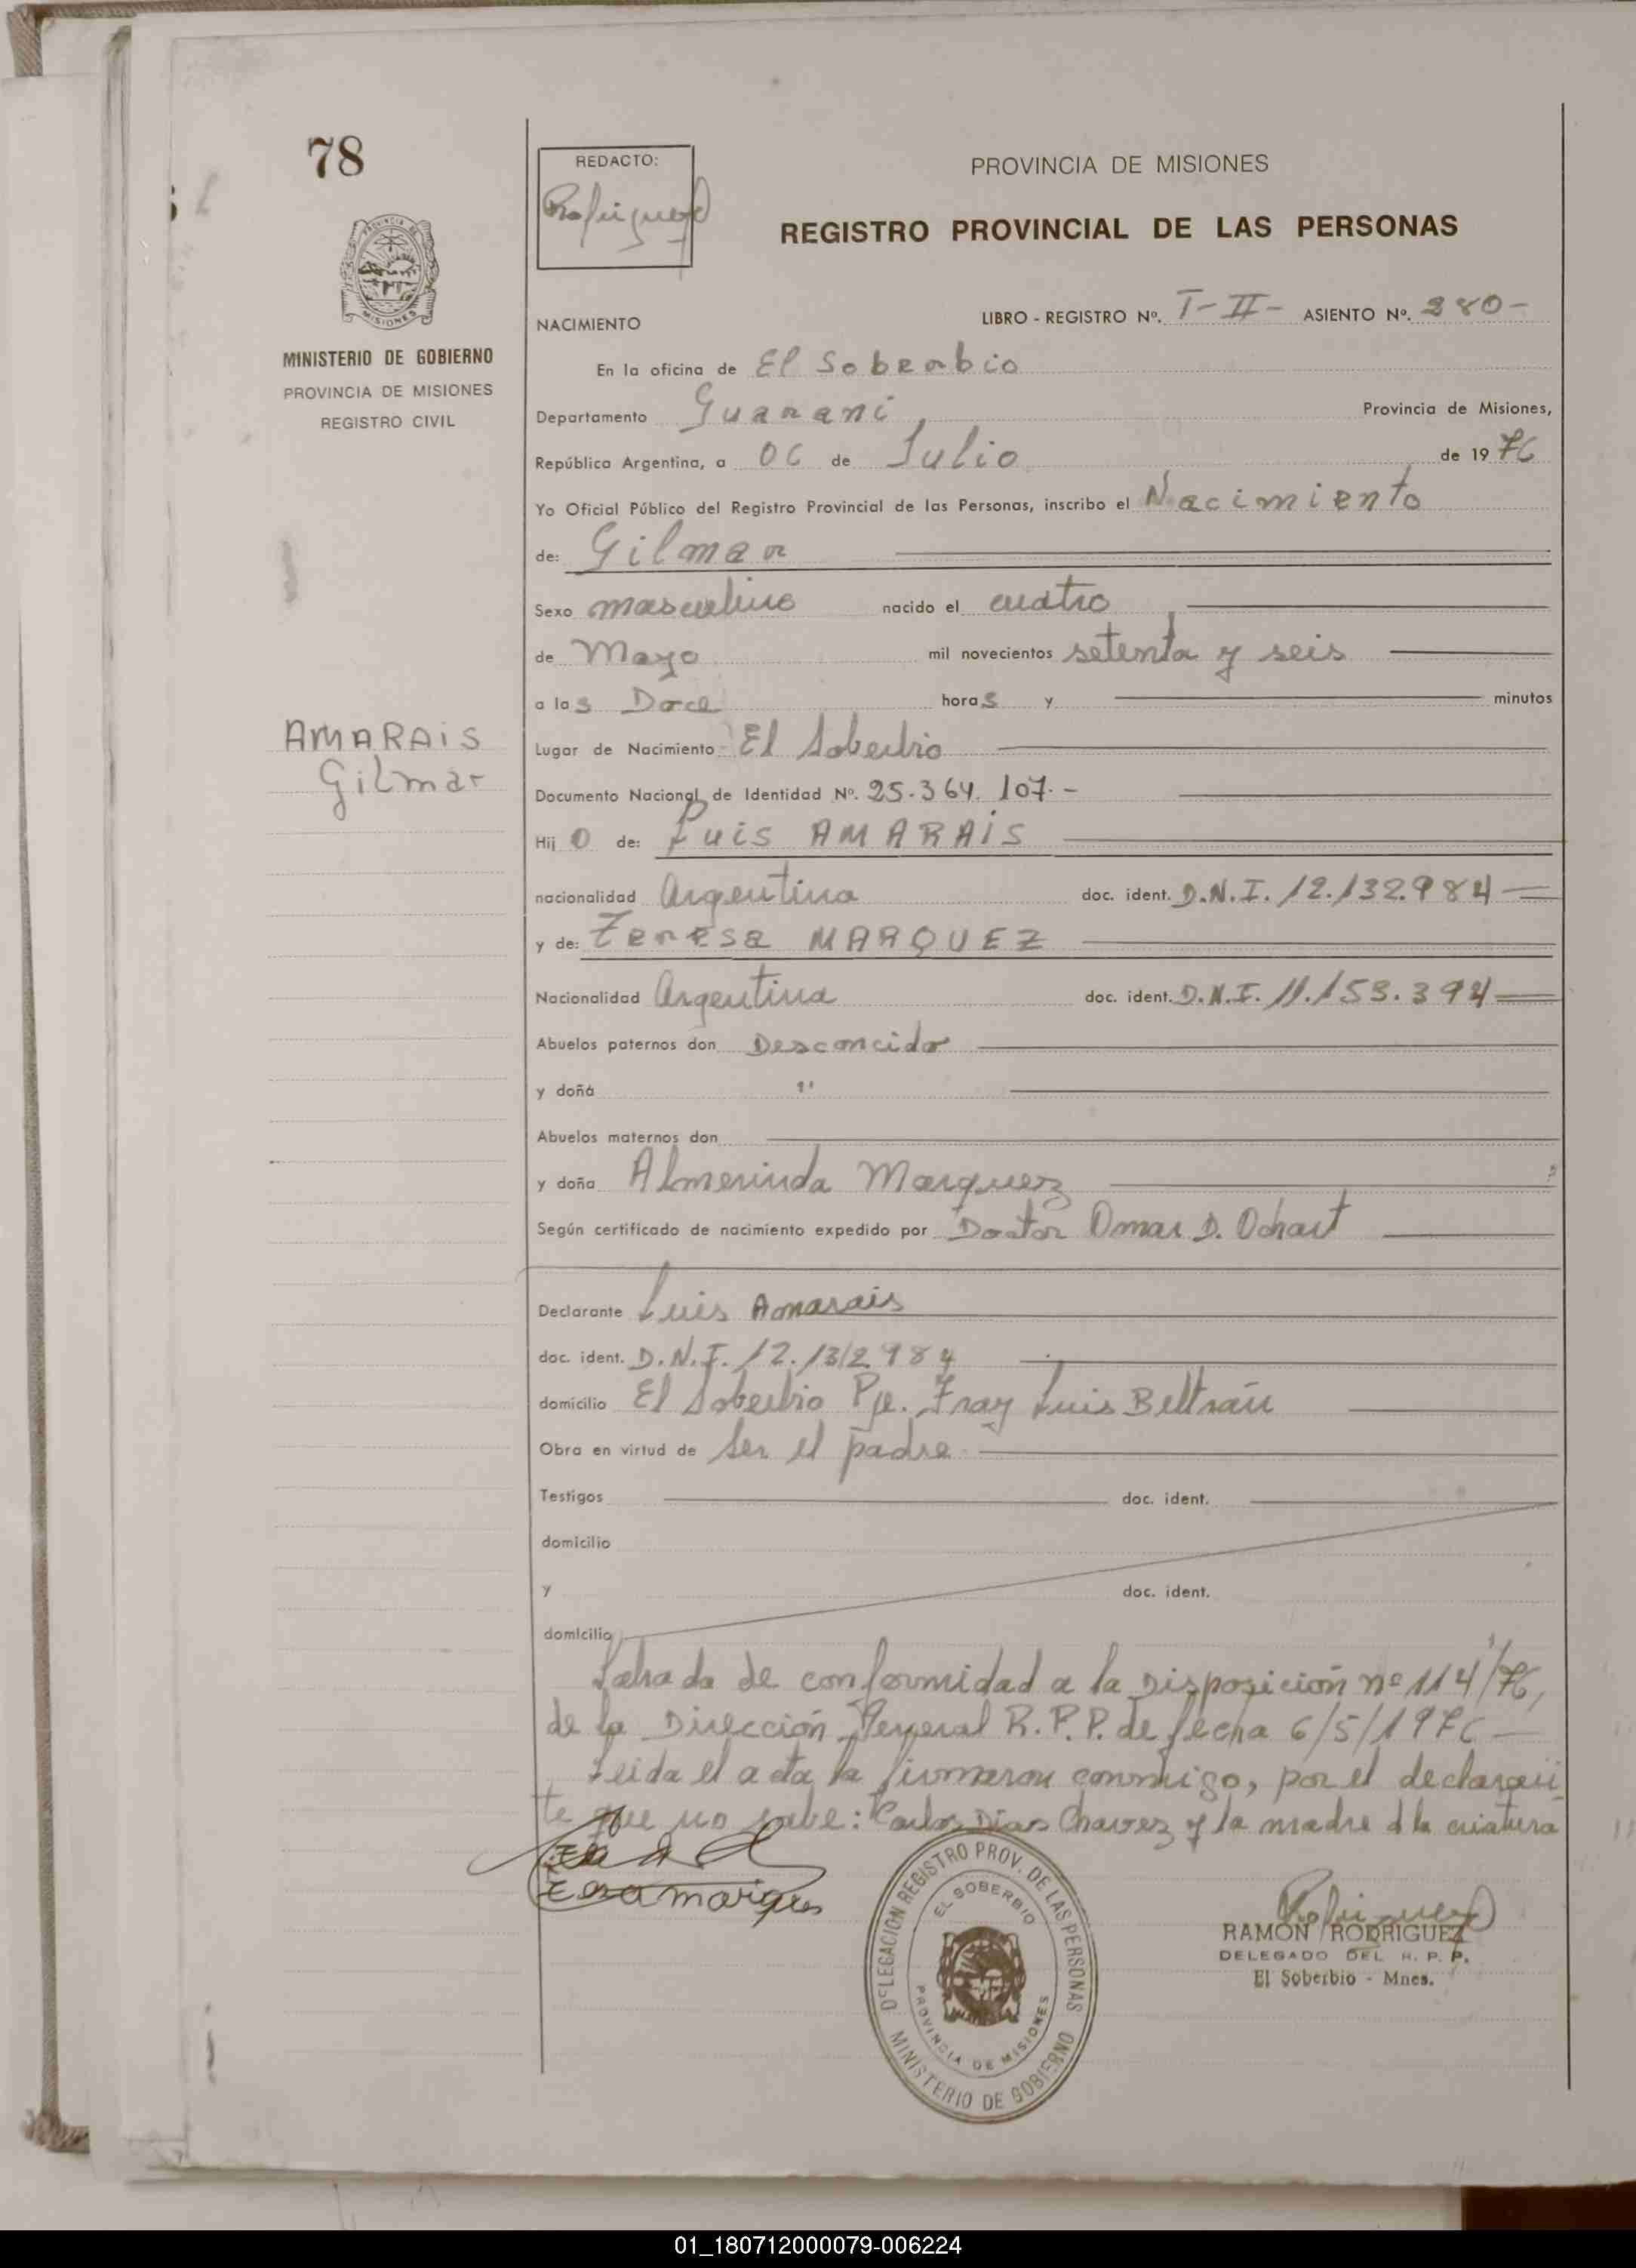 78
REDACTO:
Rodriguez
PROVINCIA DE MISIONES
REGISTRO PROVINCIAL DE LAS PERSONAS
MISIONES
MINISTERIO DE GOBIERNO
PROVINCIA DE MISIONES
REGISTRO CIVIL
NACIMIENTO LIBRO - REGISTRO Nº. T-II- ASIENTO Nº. 280-
En la oficina de El Soberbio
Departamento Guarani Provincia de Misiones,
República Argentina, a 06 de Julio de 1976
Yo Oficial Público del Registro Provincial de las Personas, inscribo el Nacimiento
de: Gilmar
Sexo masculino nacido el cuatro
de Mayo mil novecientos setenta y seis
a las Doce horas y minutos
AMARAIS
Gilmar
Lugar de Nacimiento El Soberbio
Documento Nacional de Identidad Nº. 25.364.107.-
Hijo de: Luis AMARAIS
nacionalidad Argentina doc. ident. D.N.I. 12.132.984
y de: Teresa MARQUEZ
Nacionalidad Argentina doc. ident. D.N.I. 11.153.394
Abuelos paternos don Desconcido
y doña "
Abuelos maternos don
y doña Almerinda Marquez
Según certificado de nacimiento expedido por Doctor Omar D. Ochart
Declarante Luis Amarais
doc. ident. D.N.I. 12.132.984
domicilio El Soberbio Pje. Fray Luis Beltrán
Obra en virtud de ser el padre
Testigos doc. ident.
domicilio
y doc. ident.
domicilio
Labrada de conformidad a la Disposición nº 114/76,
de la Dirección General R.P.P. de fecha 6/5/1976
Leida el acta la firmaron conmigo, por el declaran
te que no sabe: Carlos Dias Chavez y la madre d la criatura
DELEGACION REGISTRO PROV. DE LAS PERSONAS
EL SOBERBIO
PROVINCIA DE MISIONES
MINISTERIO DE GOBIERNO
Rodriguez
RAMON RODRIGUEZ
DELEGADO DEL R. P. P.
El Soberbio - Mnes.
01_180712000079-006224